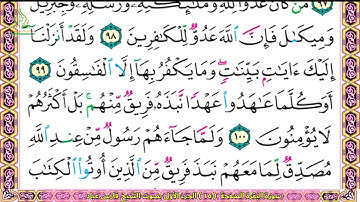 مَن كَانَ عَدُوًّا لِّلَّهِ وَمَلَـٰٓئِكَتِهِۦ وَرُسُلِهِۦ وَجِبْرِيلَ
وَمِيكَىٰلَ فَإِنَّ ٱللَّهَ عَدُوٌّ لِّلْكَـٰفِرِينَ ٩٨ وَلَقَدْ أَنزَلْنَآ
إِلَيْكَ ءَايَـٰتٍۭ بَيِّنَـٰتٍ ۖ وَمَا يَكْفُرُ بِهَآ إِلَّا ٱلْفَـٰسِقُونَ
٩٩ أَوَكُلَّمَا عَـٰهَدُوا۟ عَهْدًا نَّبَذَهُۥ فَرِيقٌ مِّنْهُم ۚ بَلْ أَكْثَرُهُمْ
لَا يُؤْمِنُونَ ١٠٠ وَلَمَّا جَآءَهُمْ رَسُولٌ مِّنْ عِندِ ٱللَّهِ
مُصَدِّقٌ لِّمَا مَعَهُمْ نَبَذَ فَرِيقٌ مِّنَ ٱلَّذِينَ أُوتُوا۟ ٱلْكِتَـٰبَ